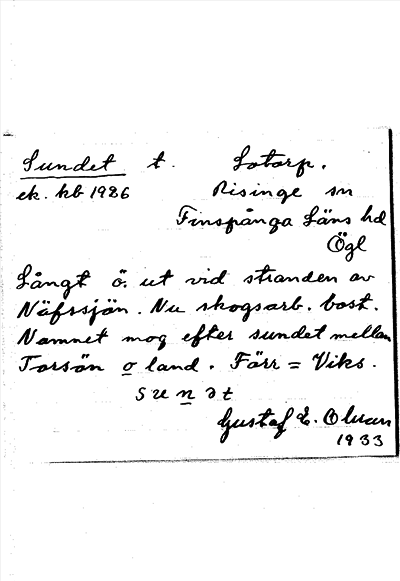 Sundet t. Lotorp.
ek. kb 1986 Risinge sn
Finspånga Läns hd
Ögl
Långt ö. ut vid stranden av
Näfssjön. Nu skogsarb. bost.
Namnet mog efter sundet mellan
Torsön o land. Förr = Viks.
sunət
Gustaf E. Olman
1933